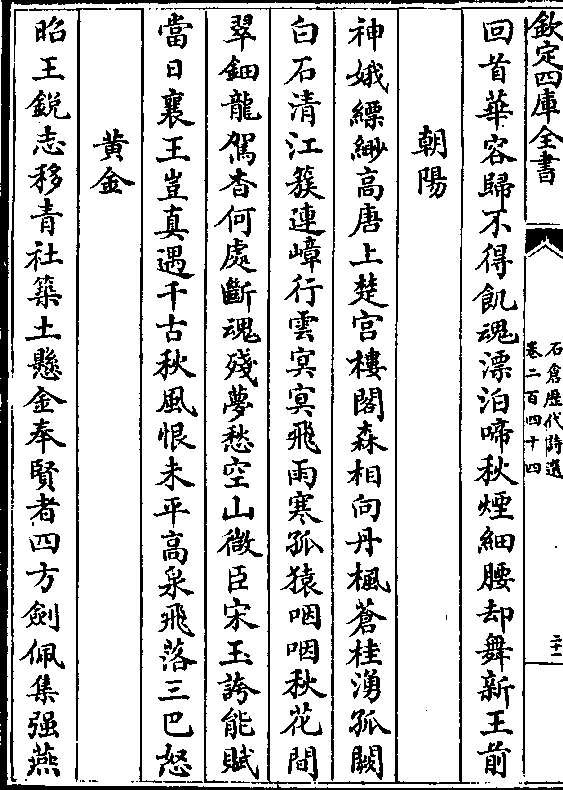 欽定四庫全書
石倉歷代詩選
卷二百四十四
二十一
回首華容歸不得飢魂漂泊啼秋煙細腰却舞新王前
朝陽
神娥縹緲高唐上楚宫樓閣森相向丹楓蒼桂湧孤闕
白石清江簇連嶂行雲冥冥飛雨寒孤猿咽咽秋花間
翠鈿龍駕杳何處斷魂殘夢愁空山微臣宋玉誇能賦
當日襄王豈真遇千古秋風恨未平高泉飛落三巴怒
黄金
昭王鋭志移青社築土懸金奉賢者四方劍佩集强燕